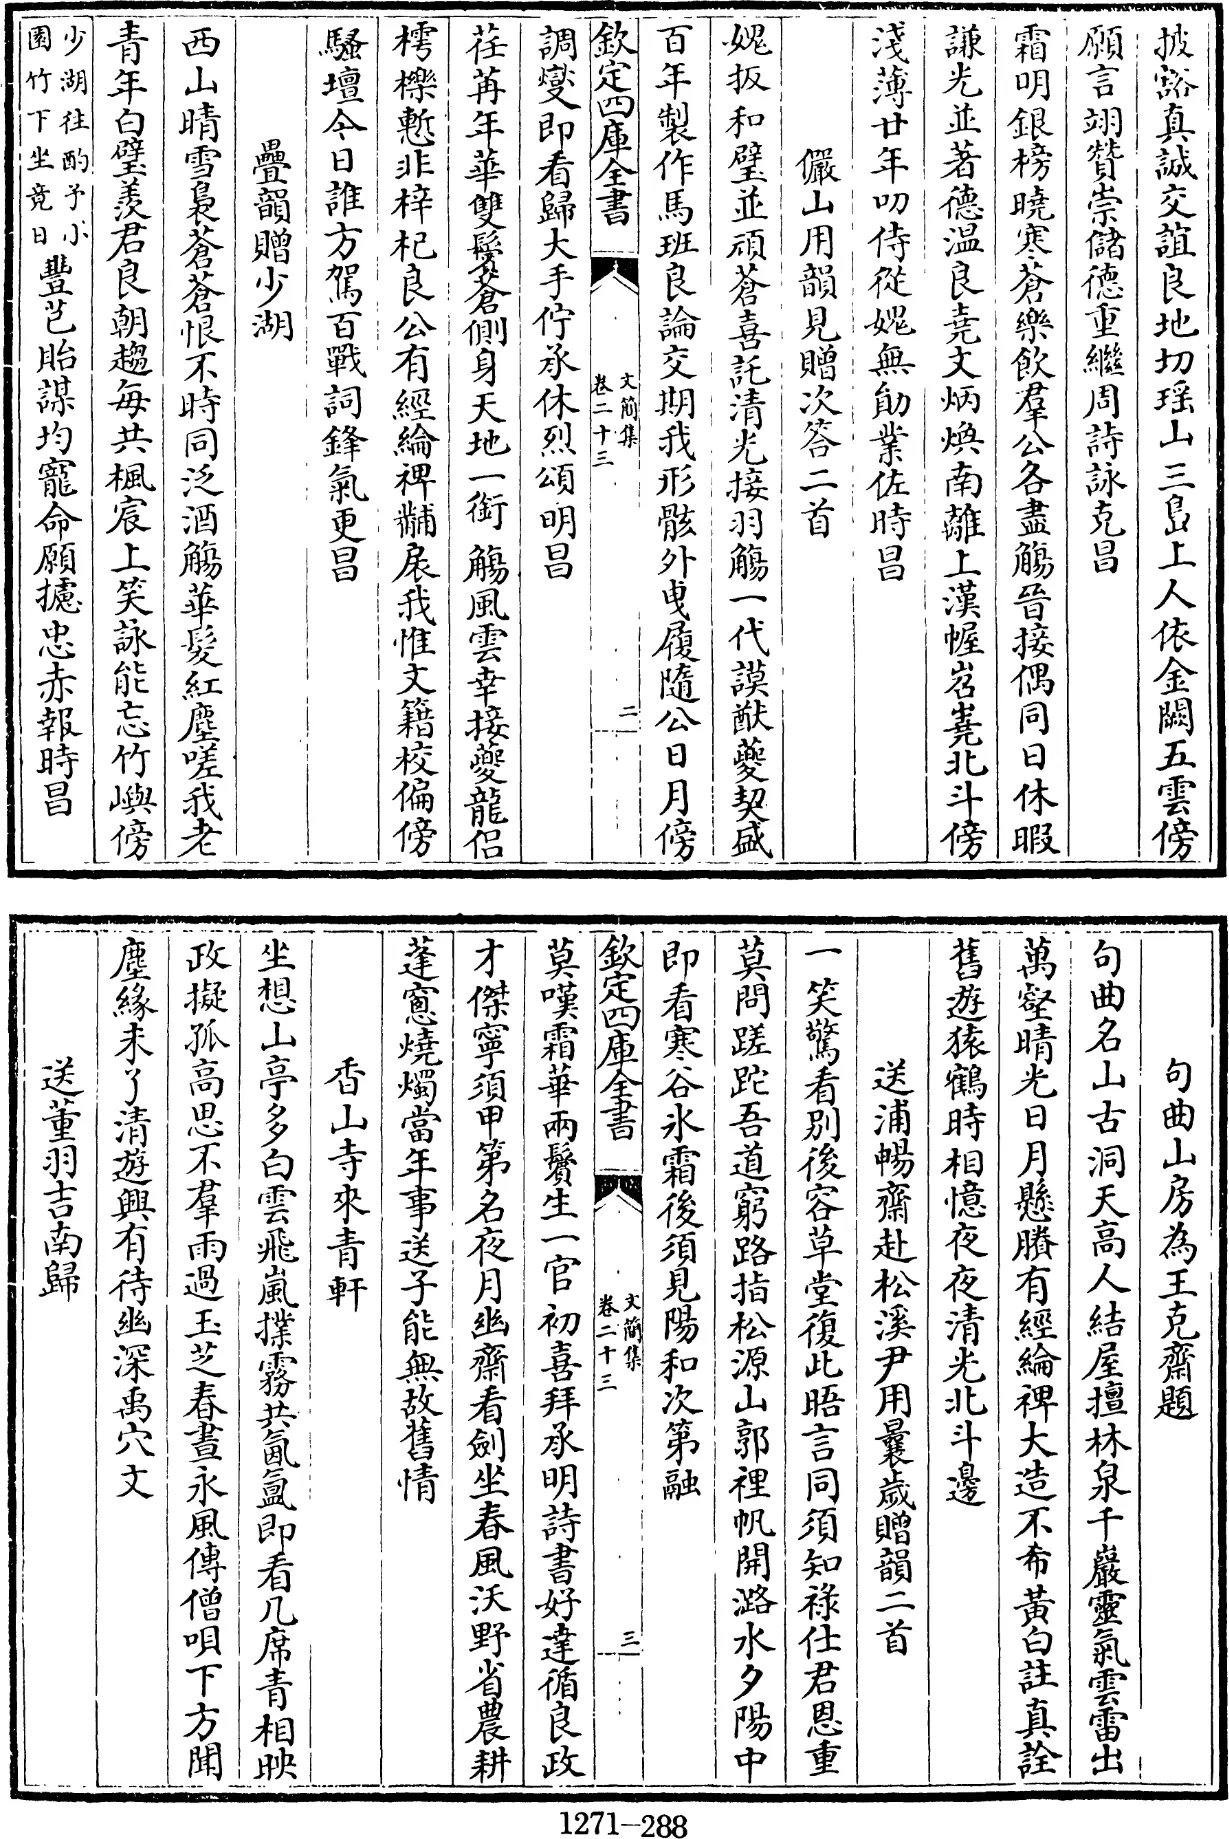 披豁真誠交誼良地切瑶山三島上人依金闕五雲傍
願言翊贊崇儲德重繼周詩詠克昌
霜明銀榜曉寒蒼樂飲羣公各盡觴晉接偶同日休暇
謙光並著德温良堯文炳煥南離上漢幄岧嶤北斗傍
淺薄廿年叨侍從媿無勛業佐時昌
儼山用韻見贈次答二首
媿扳和璧並頑蒼喜託清光接羽觴一代謨猷夔契盛
百年製作馬班良論交期我形骸外曵履隨公日月傍
欽定四庫全書
文簡集
卷二十三
二
調爕即看歸大手佇承休烈頌明昌
荏苒年華雙鬂蒼側身天地一銜觴風雲幸接夔龍侣
樗櫟慙非梓杞良公有經綸裨黼扆我惟文籍校偏傍
騷壇今日誰方駕百戰詞鋒氣更昌
疊韻贈少湖
西山晴雪裊蒼蒼恨不時同泛酒觴華髮紅塵嗟我老
青年白璧羨君良朝趨每共楓宸上笑詠能忘竹嶼傍
少湖往酌予小
園竹下坐竟日
豐芑貽謀均寵命願攄忠赤報時昌
句曲山房為王克齋題
句曲名山古洞天高人結屋擅林泉千巖靈氣雲雷出
萬壑晴光日月懸賸有經綸裨大造不希黃白註真詮
舊遊猿鶴時相憶夜夜清光北斗邊
送浦暢齋赴松溪尹用曩歲贈韻二首
一笑驚看别後容草堂復此晤言同須知祿仕君恩重
莫問蹉跎吾道窮路指松源山郭裡帆開潞水夕陽中
即看寒谷氷霜後須見陽和次第融
欽定四庫全書
文簡集
卷二十三
三
莫嘆霜華兩鬢生一官初喜拜承明詩書好達循良政
才傑寧須甲第名夜月幽齋看劍坐春風沃野省農耕
蓬窻燒燭當年事送子能無故舊情
香山寺來青軒
坐想山亭多白雲飛嵐撲霧共氤氲即看几席青相映
政擬孤高思不羣雨過玉芝春晝永風傳僧唄下方聞
塵緣未了清遊興有待幽深禹穴文
送董羽吉南歸
1271—288